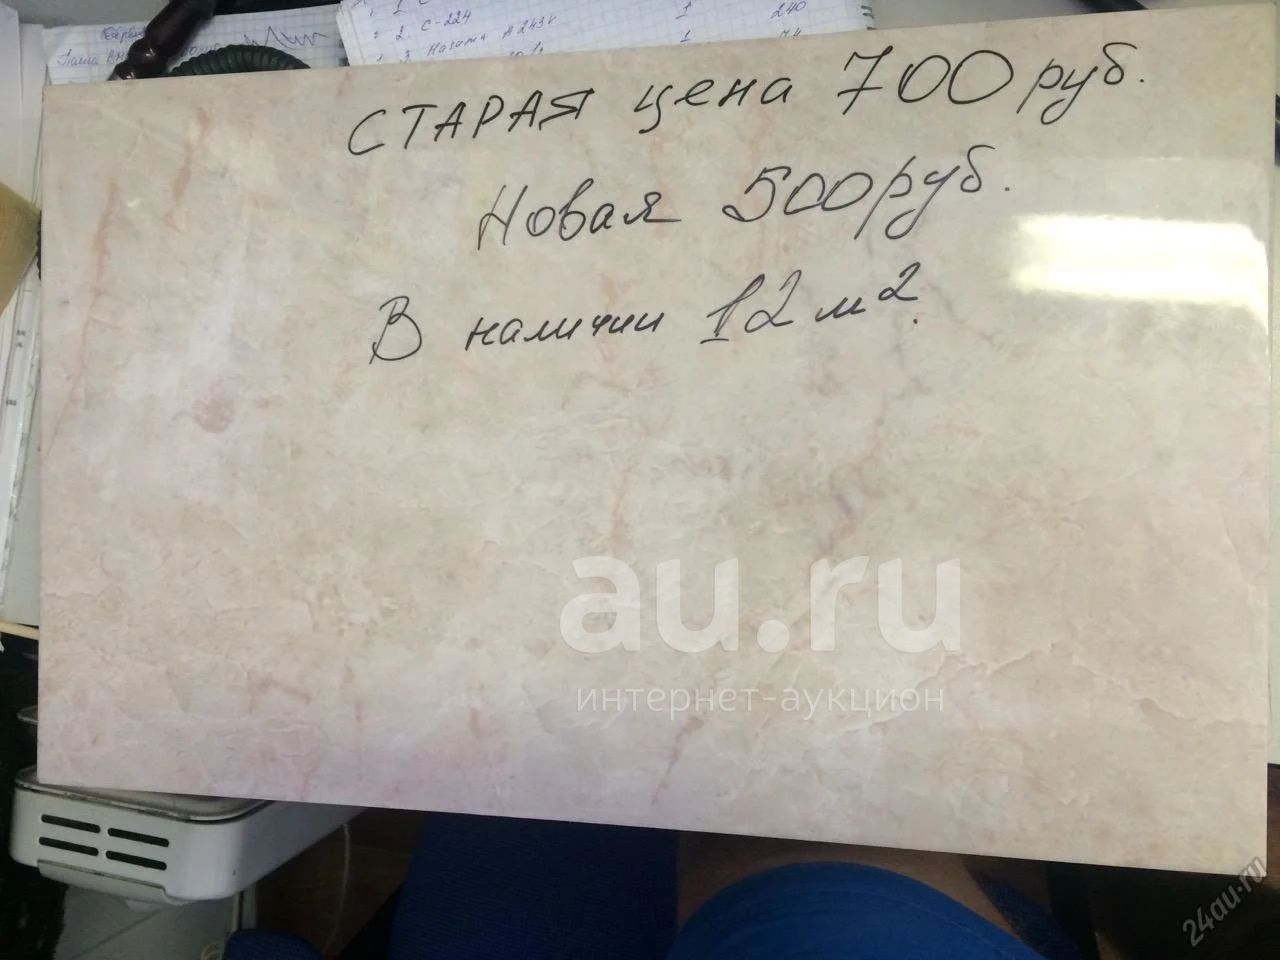 1 240
2. С-224
1
СТАРАЯ цена 700 руб.
Новая 500 руб.
В наличии 12 м².
au.ru
интернет-аукцион
24au.ru